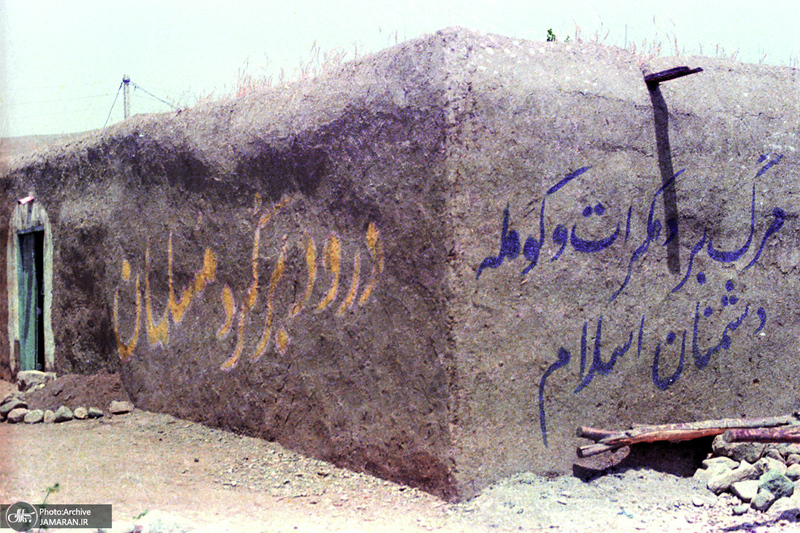 مرگ بر دمکرات و کومله
دشمنان اسلام
درود بر کرد مسلمان
Photo:Archive
JAMARAN.IR